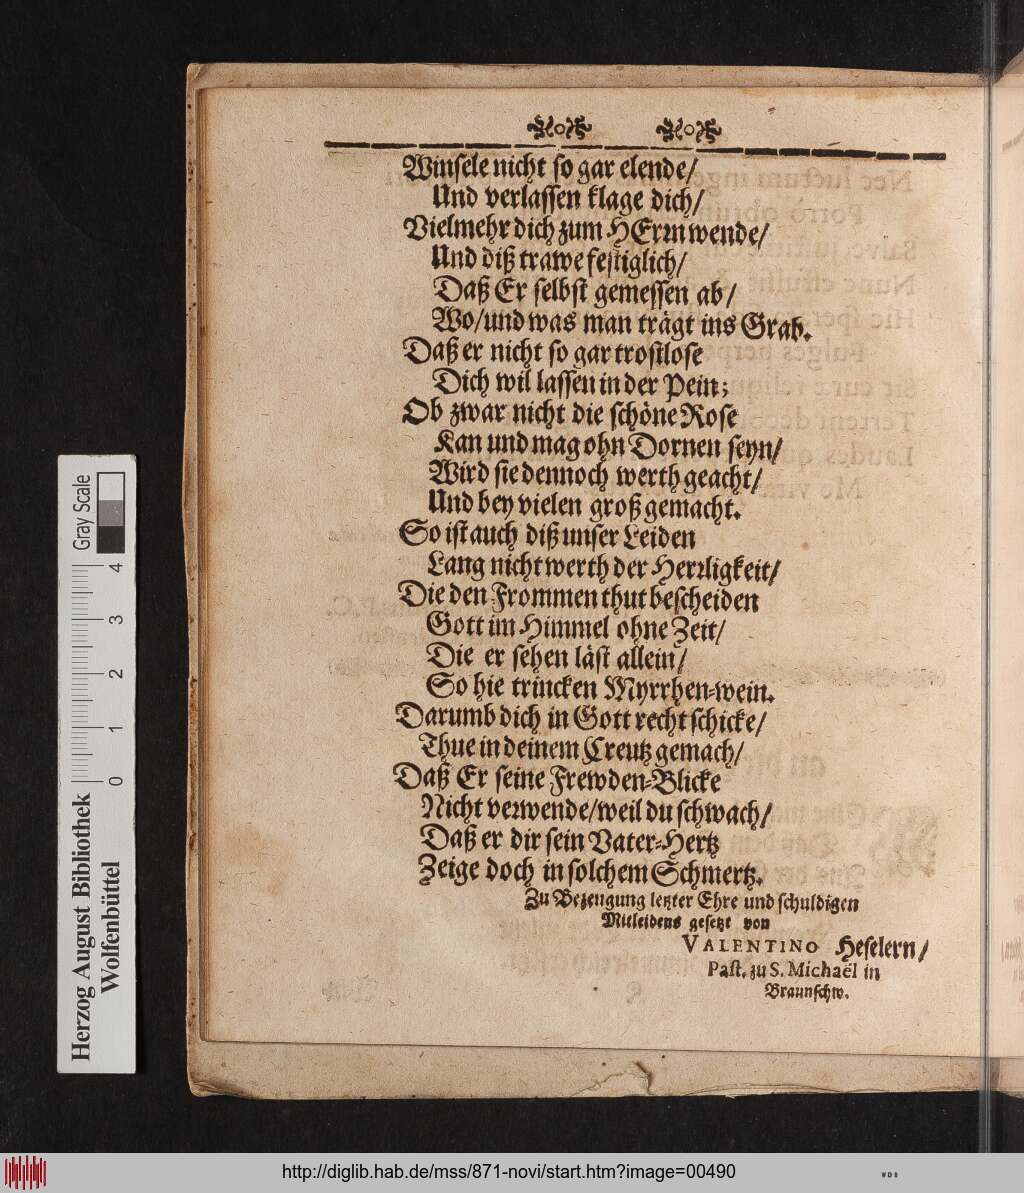 Winsele nicht so gar elende/
Und verlassen klage dich/
Vielmehr dich zum HErrn wende/
Und diß trawe festiglich/
Daß Er selbst gemessen ab/
Wo/und was man trägt ins Grab.
Daß er nicht so gar trostlose
Dich wil lassen in der Pein;
Ob zwar nicht die schöne Rose
Kan und mag ohn Dornen seyn/
Wird sie dennoch werth geacht/
Und bey vielen groß gemacht.
So ist auch diß unser Leiden
Lang nicht werth der Herrligkeit/
Die den Frommen thut bescheiden
Gott im Himmel ohne Zeit/
Die er sehen läst allein/
So hie trincken Myrrhen-wein.
Darumb dich in Gott recht schicke/
Thue in deinem Creutz gemach/
Daß Er seine Frewden-Blicke
Nicht verwende/weil du schwach/
Daß er dir sein Vater-Hertz
Zeige doch in solchem Schmertz.
Zu Bezeugung letzter Ehre und schuldigen
Mitleidens gesetzt von
VALENTINO Heselern/
Past. zu S. Michaël in
Braunschw.
Herzog August Bibliothek
Wolfenbüttel
0 1 2 3 4
Gray Scale
http://diglib.hab.de/mss/871-novi/start.htm?image=00490
WDB